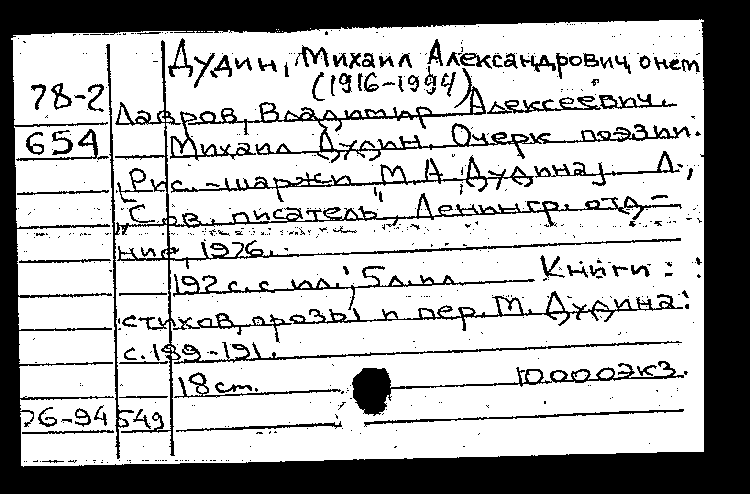 Дудин, Михаил Александрович, о нем
(1916-1994)
78-2
Лавров, Владимир Алексеевич.
654 Михаил Дудин. Очерк поэзии.
[Рис.-шаржи М.А. Дудина]. Л.,
"Сов. писатель", Ленингр. отд-
ние, 1976.
192 с. с ил.; 5 л. ил. Книги:
стихов, прозы и пер. М. Дудина:
с. 189-191.
18 см. 10.000 экз.
76-94 549